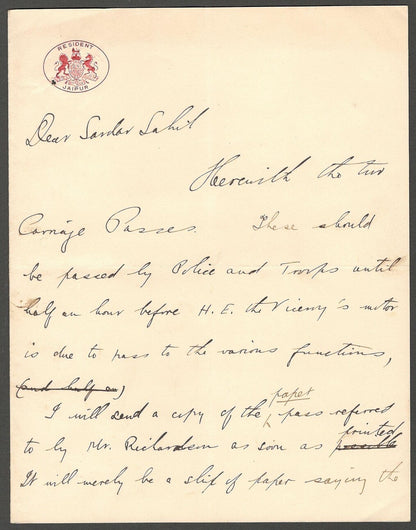 RESIDENT
JAIPUR
Dear Sardar Sahib
Herewith the two
Carriage Passes. These should
be passed by Police and Troops until
half an hour before H. E. the Viceroy's motor
is due to pass to the various functions,
(and half an)
paper
I will send a copy of the pass referred
printed
to by Mr. Richardson as soon as possible
It will merely be a slip of paper saying the